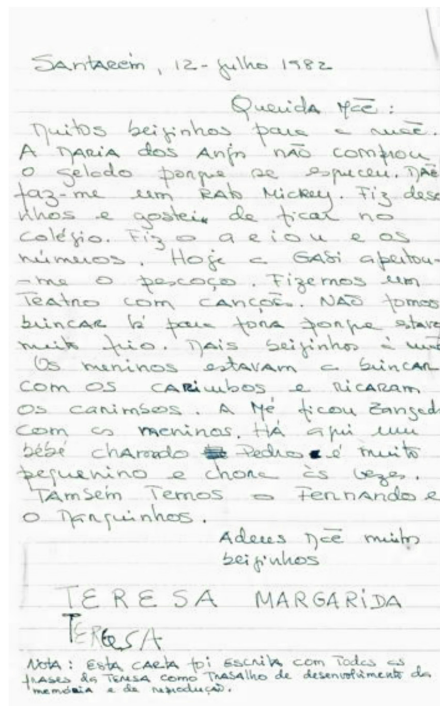 Santarém, 12 - Julho 1982
Querida Mãe:
Muitos beijinhos para a mãe.
A Maria dos Anjos não comprou
o gelado porque se esqueceu. Mãe
faz-me um Rato Mickey. Fiz dese
nhos e gostei de ficar no
colégio. Fiz o a e i o u e os
números. Hoje a Gabi apertou-
-me o pescoço. Fizemos um
Teatro com canções. Não fomos
brincar lá para fora porque estava
muito frio. Mais beijinhos à mãe
Os meninos estavam a brincar
com os carimbos e ricaram
os carimbos. A Mé ficou zangada
com os meninos. Há aqui um
bébé chamado Pedro e é muito
pequenino e chora às vezes.
Também temos o Fernando e
o Marquinhos.
Adeus Mãe muitos
beijinhos
TERESA MARGARIDA
TERESA
Nota: Esta carta foi escrita com todas as
frases da Teresa como trabalho de desenvolvimento da
memória e de reprodução.